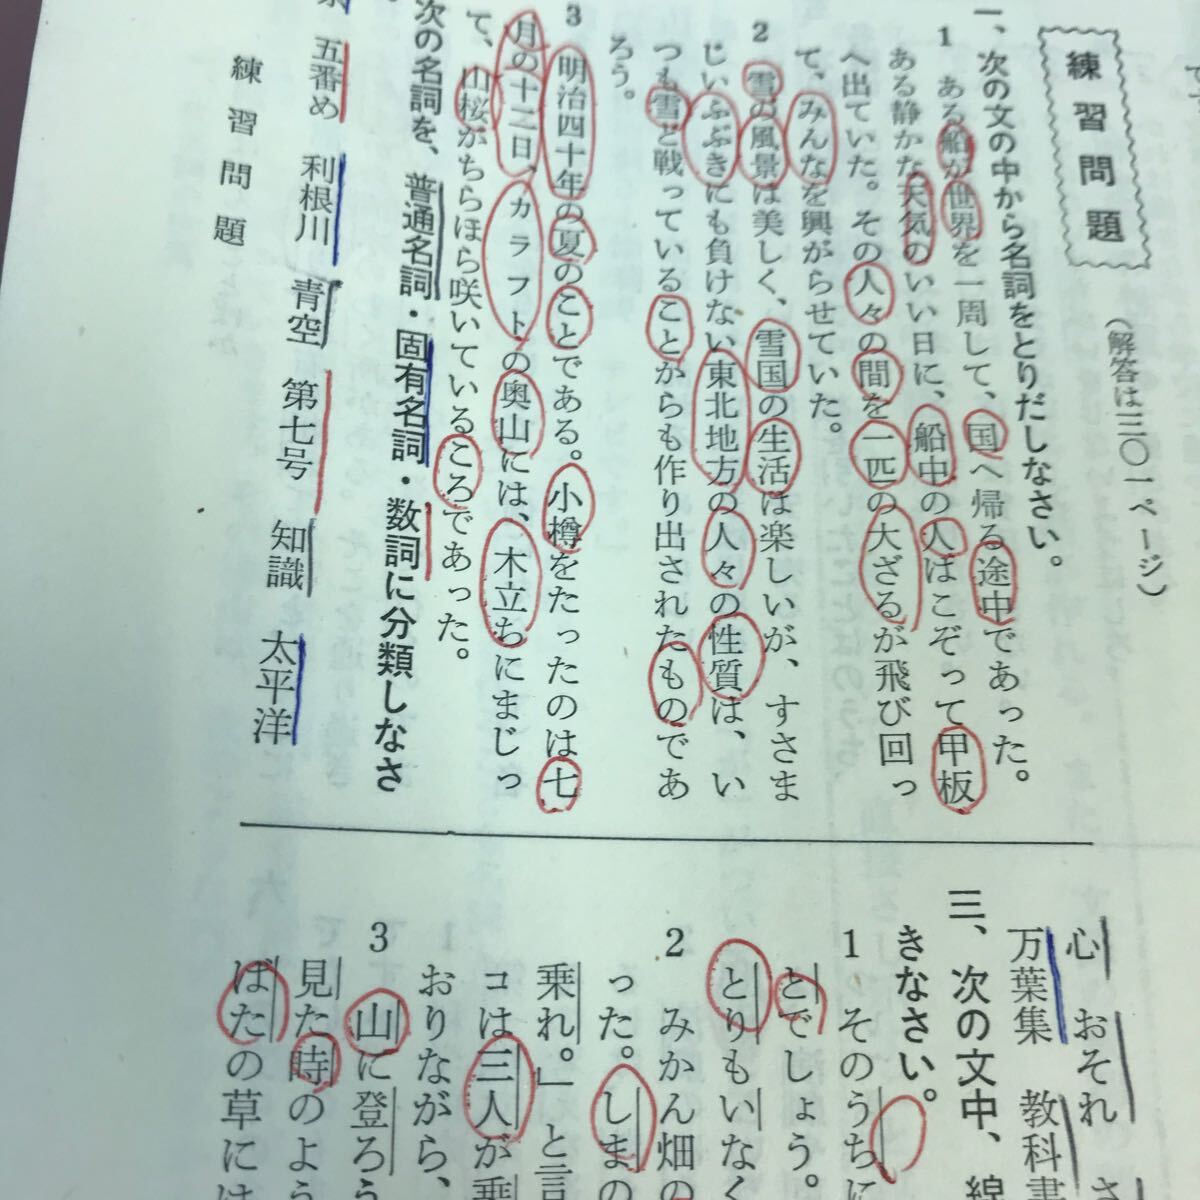 練習問題
(解答は三〇一ページ)
一、次の文の中から名詞をとりだしなさい。
1 ある船が世界を一周して、国へ帰る途中であった。
ある静かな天気のいい日に、船中の人はこぞって甲板
へ出ていた。その人々の間を一匹の大ざるが飛び回っ
て、みんなを興がらせていた。
2 雪の風景は美しく、雪国の生活は楽しいが、すさま
じいふぶきにも負けない東北地方の人々の性質は、い
つも雪と戦っていることからも作り出されたものであ
ろう。
3 明治四十年の夏のことである。小樽をたったのは七
月の十二日、カラフトの奥山には、木立ちにまじっ
て、山桜がちらほら咲いているころであった。
次の名詞を、普通名詞・固有名詞・数詞に分類しなさ
五番め 利根川 青空 第七号 知識 太平洋
練習問題
心 おそれ
万葉集 教科書
三、次の文中、
きなさい。
1 そのうちに
とでしょう。
とりもいなく
2 みかん畑の
った。しまの
乗れ。」と言
コは三人が乗
おりながら、
3 山に登ろう
見た時のよう
ばたの草には